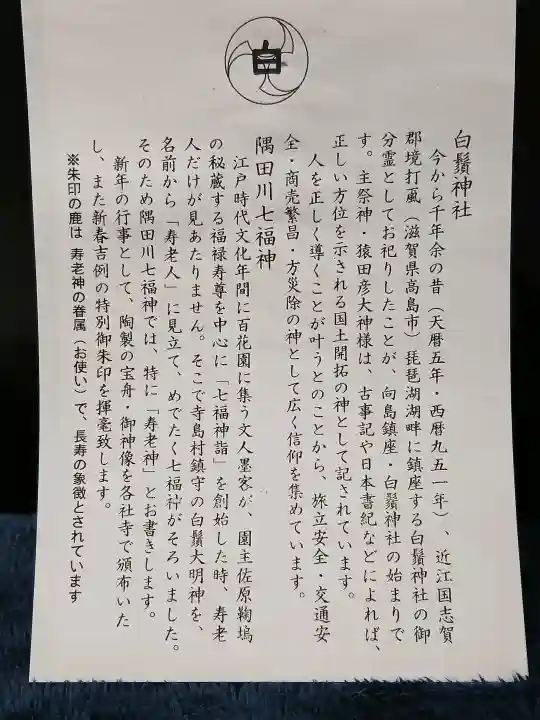 白
白鬚神社
今から千年余の昔（天暦五年・西暦九五一年）、近江国志賀
郡境打颪（滋賀県高島市）琵琶湖湖畔に鎮座する白鬚神社の御
分霊としてお祀りしたことが、向島鎮座・白鬚神社の始まりで
す。主祭神・猿田彦大神様は、古事記や日本書紀などによれば、
正しい方位を示される国土開拓の神として記されています。
人を正しく導くことが叶うとのことから、旅立安全・交通安
全・商売繁昌・方災除の神として広く信仰を集めています。
隅田川七福神
江戸時代文化年間に百花園に集う文人墨客が、園主佐原鞠塢
の秘蔵する福禄寿尊を中心に「七福神詣」を創始した時、寿老
人だけが見あたりません。そこで寺島村鎮守の白鬚大明神を、
名前から「寿老人」に見立て、めでたく七福神がそろいました。
そのため隅田川七福神では、特に「寿老神」とお書きします。
新年の行事として、陶製の宝舟・御神像を各社寺で頒布いた
し、また新春吉例の特別御朱印を揮毫致します。
※朱印の鹿は 寿老神の眷属（お使い）で、長寿の象徴とされています